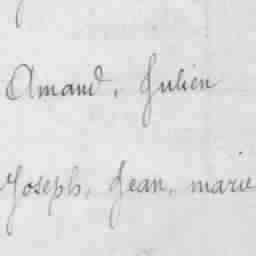 Amand, Julien
Joseph, Jean, marie